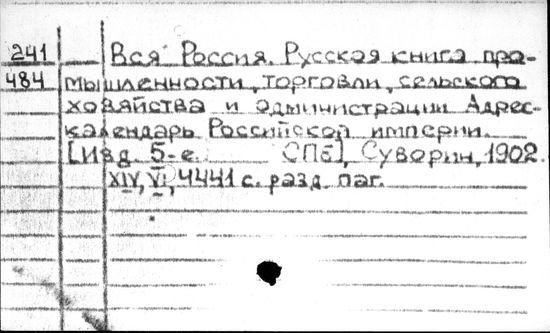 241 Вся Россия. Русская книга про-
484 мышленности, торговли, сельского
хозяйства и администрации Адрес-
календарь Российской империи.
[Изд. 5-е СПб], Суворин, 1902.
XIV, VI, 4441 с. разд. паг.